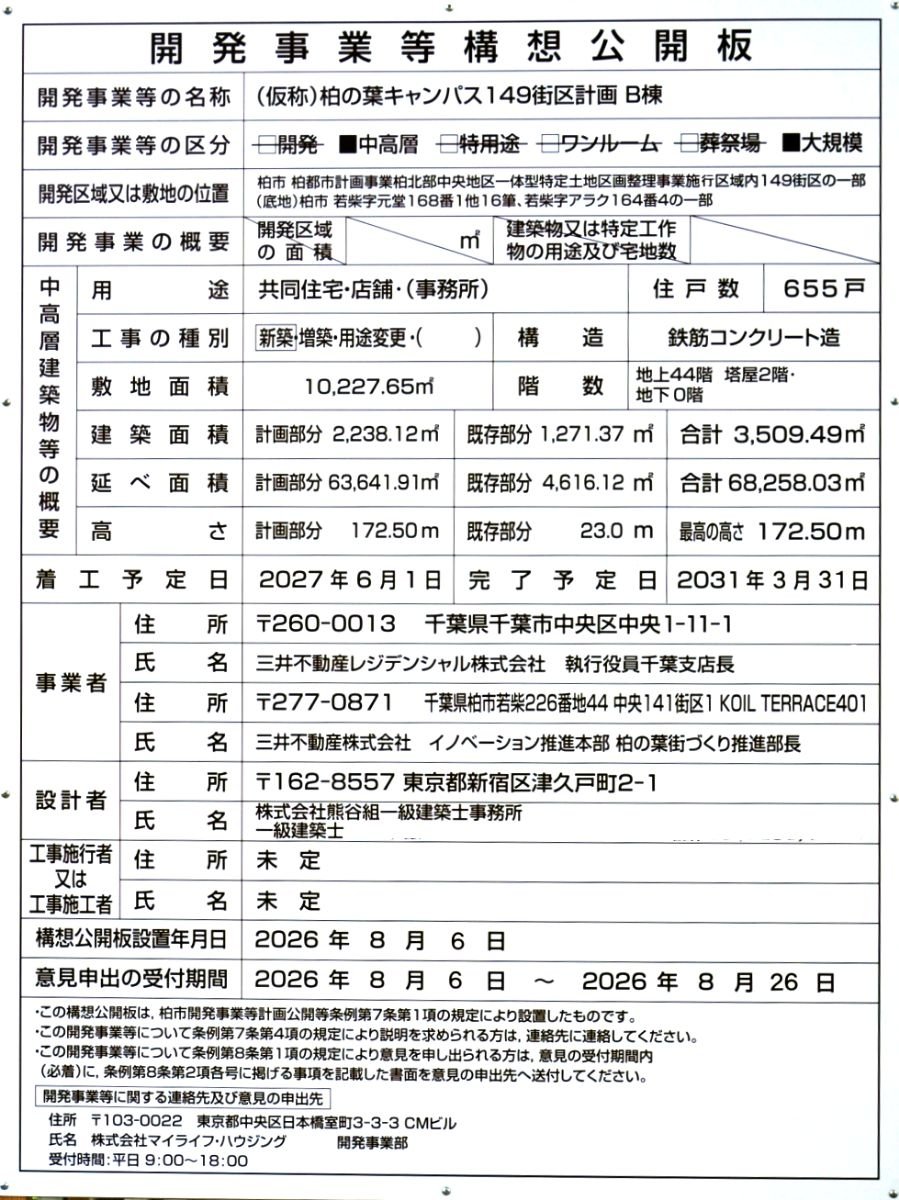 開発事業等構想公開板
開発事業等の名称 (仮称)柏の葉キャンパス149街区計画 B棟
開発事業等の区分 □開発 ■中高層 □特用途 □ワンルーム □葬祭場 ■大規模
開発区域又は敷地の位置 柏市 柏都市計画事業柏北部中央地区一体型特定土地区画整理事業施行区域内149街区の一部
(底地)柏市 若柴字元堂168番1他16筆、若柴字アラク164番4の一部
開発事業の概要 開発区域の面積 ㎡ 建築物又は特定工作物の用途及び宅地数
中高層建築物等の概要
用途 共同住宅・店舗・(事務所) 住戸数 655戸
工事の種別 新築・増築・用途変更・( ) 構造 鉄筋コンクリート造
敷地面積 10,227.65㎡ 階数 地上44階 塔屋2階・
地下0階
建築面積 計画部分 2,238.12㎡ 既存部分 1,271.37 ㎡ 合計 3,509.49㎡
延べ面積 計画部分 63,641.91㎡ 既存部分 4,616.12 ㎡ 合計 68,258.03㎡
高さ 計画部分 172.50m 既存部分 23.0 m 最高の高さ 172.50m
着工予定日 2027年6月1日 完了予定日 2031年3月31日
事業者
住所 〒260-0013 千葉県千葉市中央区中央1-11-1
氏名 三井不動産レジデンシャル株式会社 執行役員千葉支店長
住所 〒277-0871 千葉県柏市若柴226番地44 中央141街区1 KOIL TERRACE401
氏名 三井不動産株式会社 イノベーション推進本部 柏の葉街づくり推進部長
設計者
住所 〒162-8557 東京都新宿区津久戸町2-1
氏名 株式会社熊谷組一級建築士事務所
一級建築士
工事施行者
又は
工事施工者
住所 未定
氏名 未定
構想公開板設置年月日 2026年 8月 6日
意見申出の受付期間 2026年 8月 6日 〜 2026年 8月 26日
・この構想公開板は, 柏市開発事業等計画公開等条例第7条第1項の規定により設置したものです。
・この開発事業等について条例第7条第4項の規定により説明を求められる方は, 連絡先に連絡してください。
・この開発事業等について条例第8条第1項の規定により意見を申し出られる方は, 意見の受付期間内
(必着)に, 条例第8条第2項各号に掲げる事項を記載した書面を意見の申出先へ送付してください。
開発事業等に関する連絡先及び意見の申出先
住所 〒103-0022 東京都中央区日本橋室町3-3-3 CMビル
氏名 株式会社マイライフ・ハウジング 開発事業部
受付時間:平日 9:00〜18:00